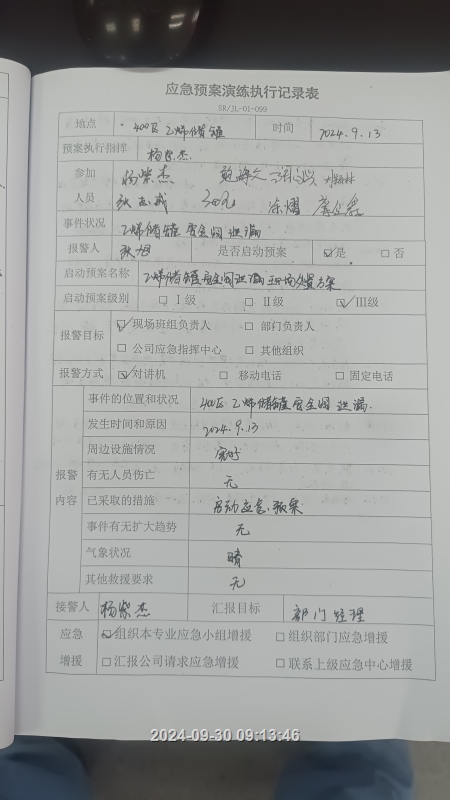 应急预案演练执行记录表
SR/JL-01-099
地点 400区乙烯储罐 时间 2024.9.13
预案执行指挥 杨崇杰
参加 杨崇杰
人员
事件状况 乙烯储罐安全阀泄漏
报警人 是否启动预案 ☑是 □否
启动预案名称 乙烯储罐安全阀泄漏现场处置方案
启动预案级别 □Ⅰ级 □Ⅱ级 ☑Ⅲ级
报警目标 ☑现场班组负责人 □部门负责人
□公司应急指挥中心 □其他组织
报警方式 ☑对讲机 □移动电话 □固定电话
事件的位置和状况 400区乙烯储罐安全阀泄漏.
发生时间和原因 2024.9.13
周边设施情况 完好
报警 有无人员伤亡 无
内容 已采取的措施 启动应急预案
事件有无扩大趋势 无
气象状况 晴
其他救援要求 无
接警人 杨崇杰 汇报目标 部门经理
应急 ☑组织本专业应急小组增援 □组织部门应急增援
增援 □汇报公司请求应急增援 □联系上级应急中心增援
2024-09-30 09:13:46